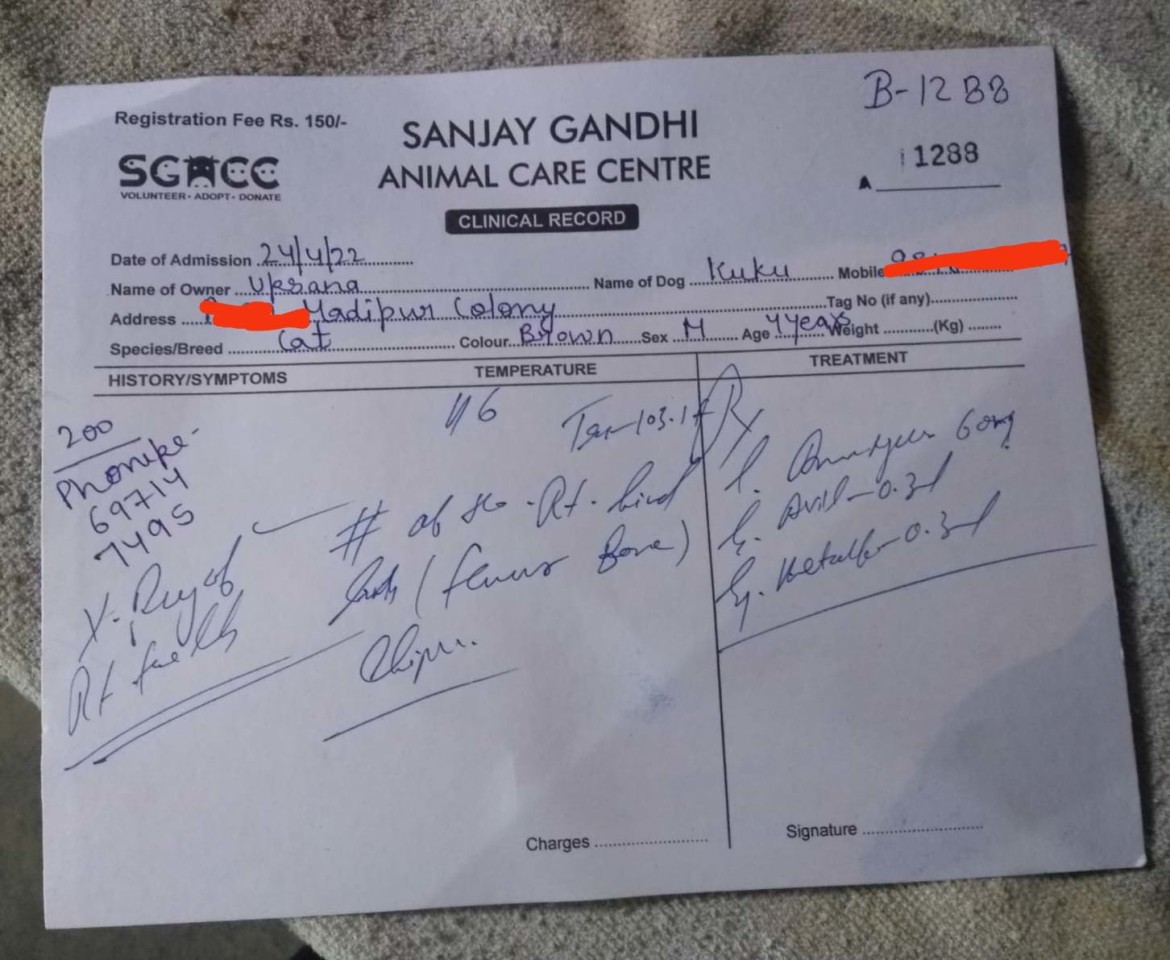 B-1288
Registration Fee Rs. 150/-
SANJAY GANDHI
ANIMAL CARE CENTRE
SGACC
VOLUNTEER • ADOPT • DONATE
1288
A
CLINICAL RECORD
Date of Admission 24/4/22
Name of Owner Name of Dog Kuku Mobile
Address Madipur Colony Tag No (if any)
Species/Breed Cat Colour Brown Sex M Age 4 years Weight (Kg)
HISTORY/SYMPTOMS TEMPERATURE TREATMENT
200
Phonepe-
69714
7495
X-Ray of
Rt
# of Rt. hind
(femur Bone)
Rx
60mg
Avil - 0.3ml
0.3ml
Charges Signature